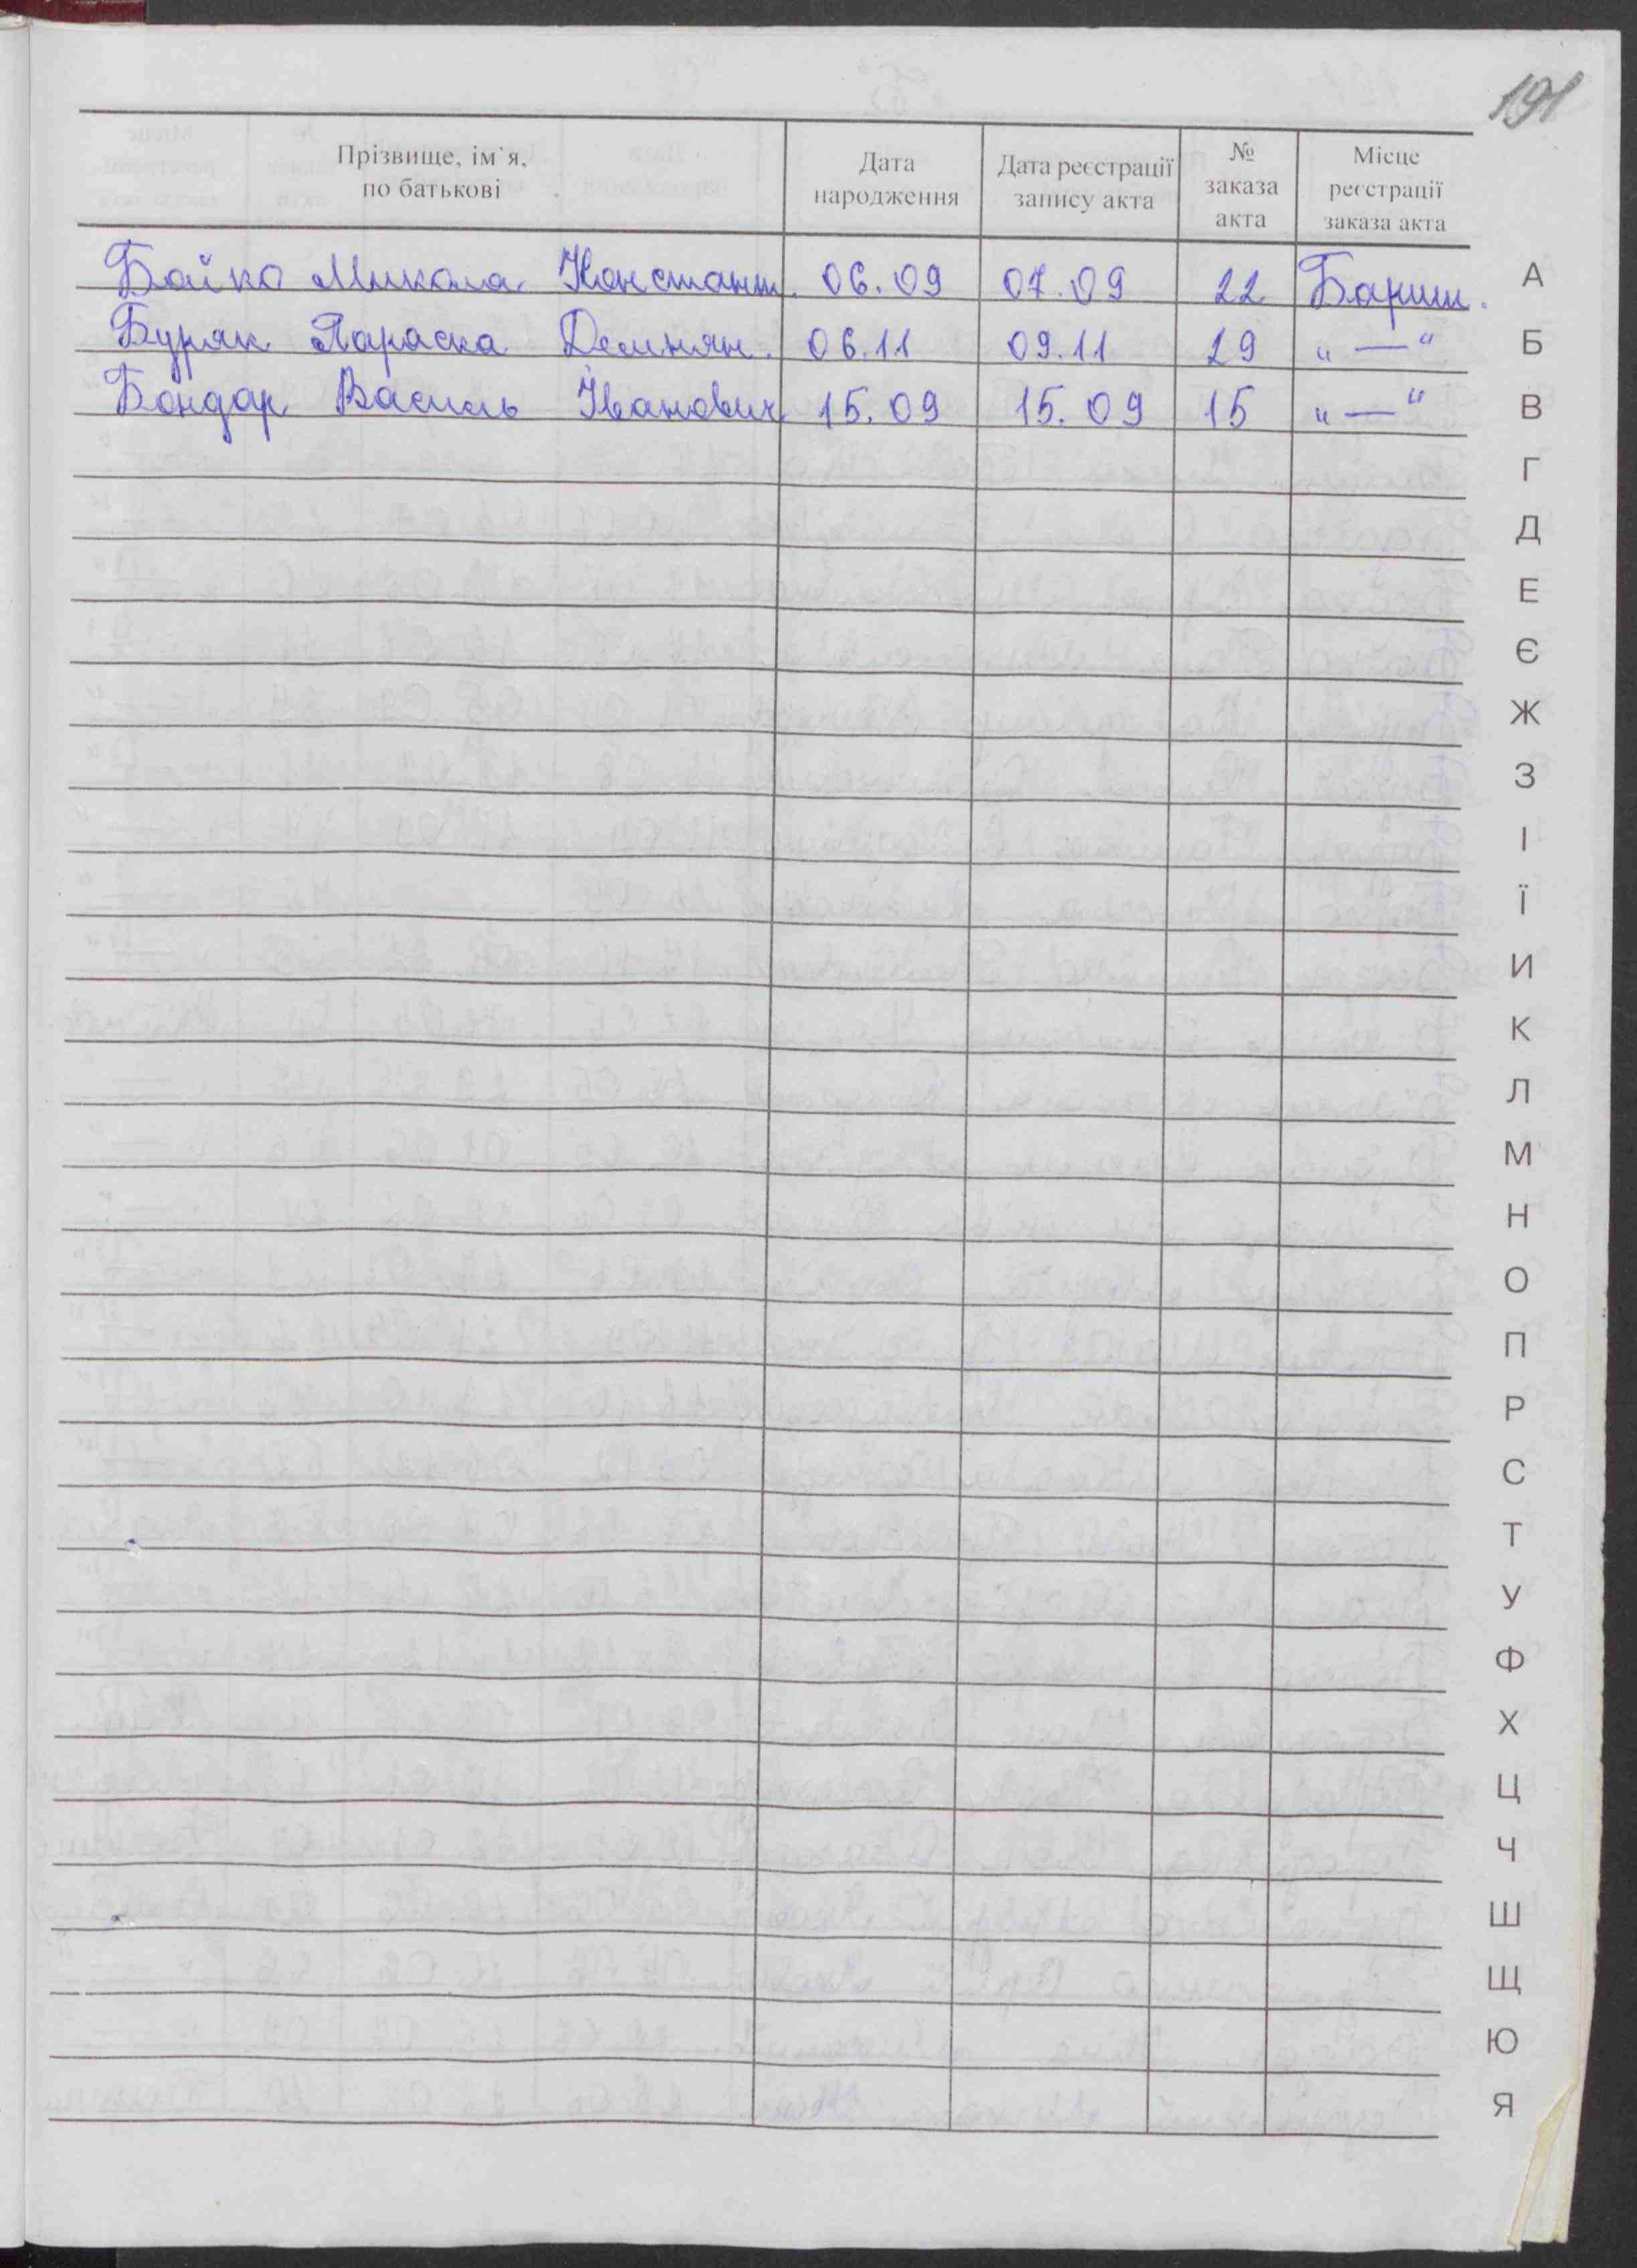 191
Прізвище, ім`я, по батькові Дата народження Дата реєстрації запису акта № заказа акта Місце реєстрації заказа акта
Бойко Микола Констант. 06.09 07.09 22 Бариш.
Буряк Параска Демнян. 06.11 09.11 29 „ — “
Бондар Василь Іванович 15.09 15.09 15 „ — “
А
Б
В
Г
Д
Е
Є
Ж
З
І
Ї
И
К
Л
М
Н
О
П
Р
С
Т
У
Ф
Х
Ц
Ч
Ш
Щ
Ю
Я